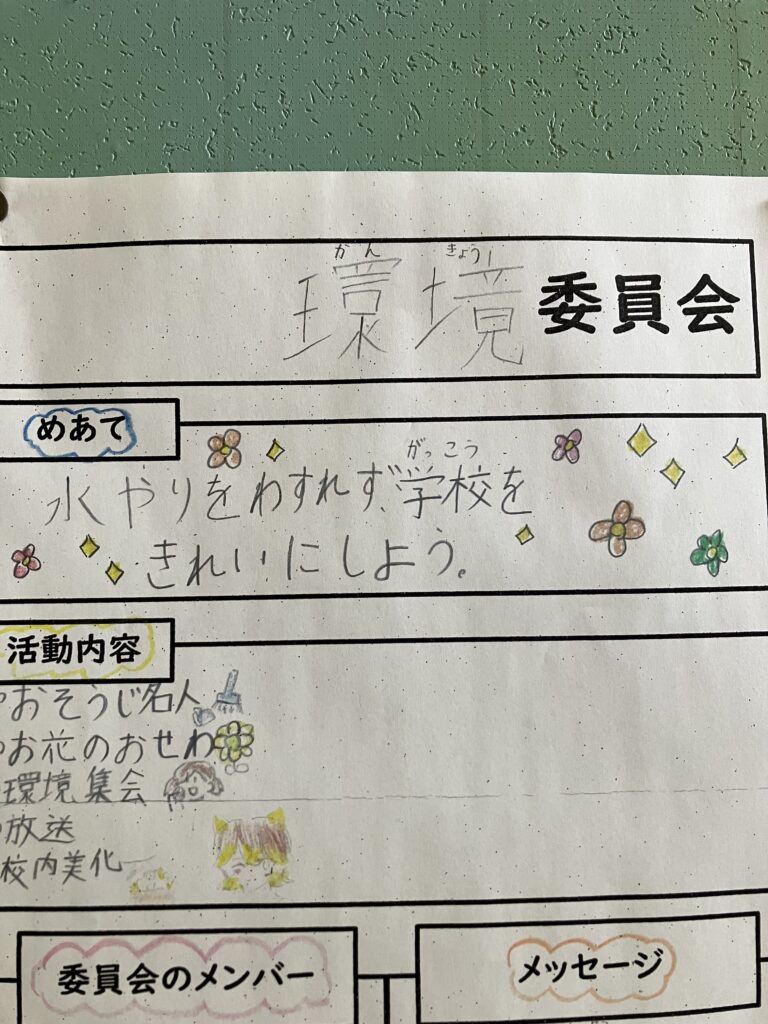 かん きょう
環境委員会
めあて
がっこう
水やりをわすれず、学校を
きれいにしよう。
活動内容
おそうじ名人
お花のおせわ
環境集会
放送
校内美化
委員会のメンバー
メッセージ